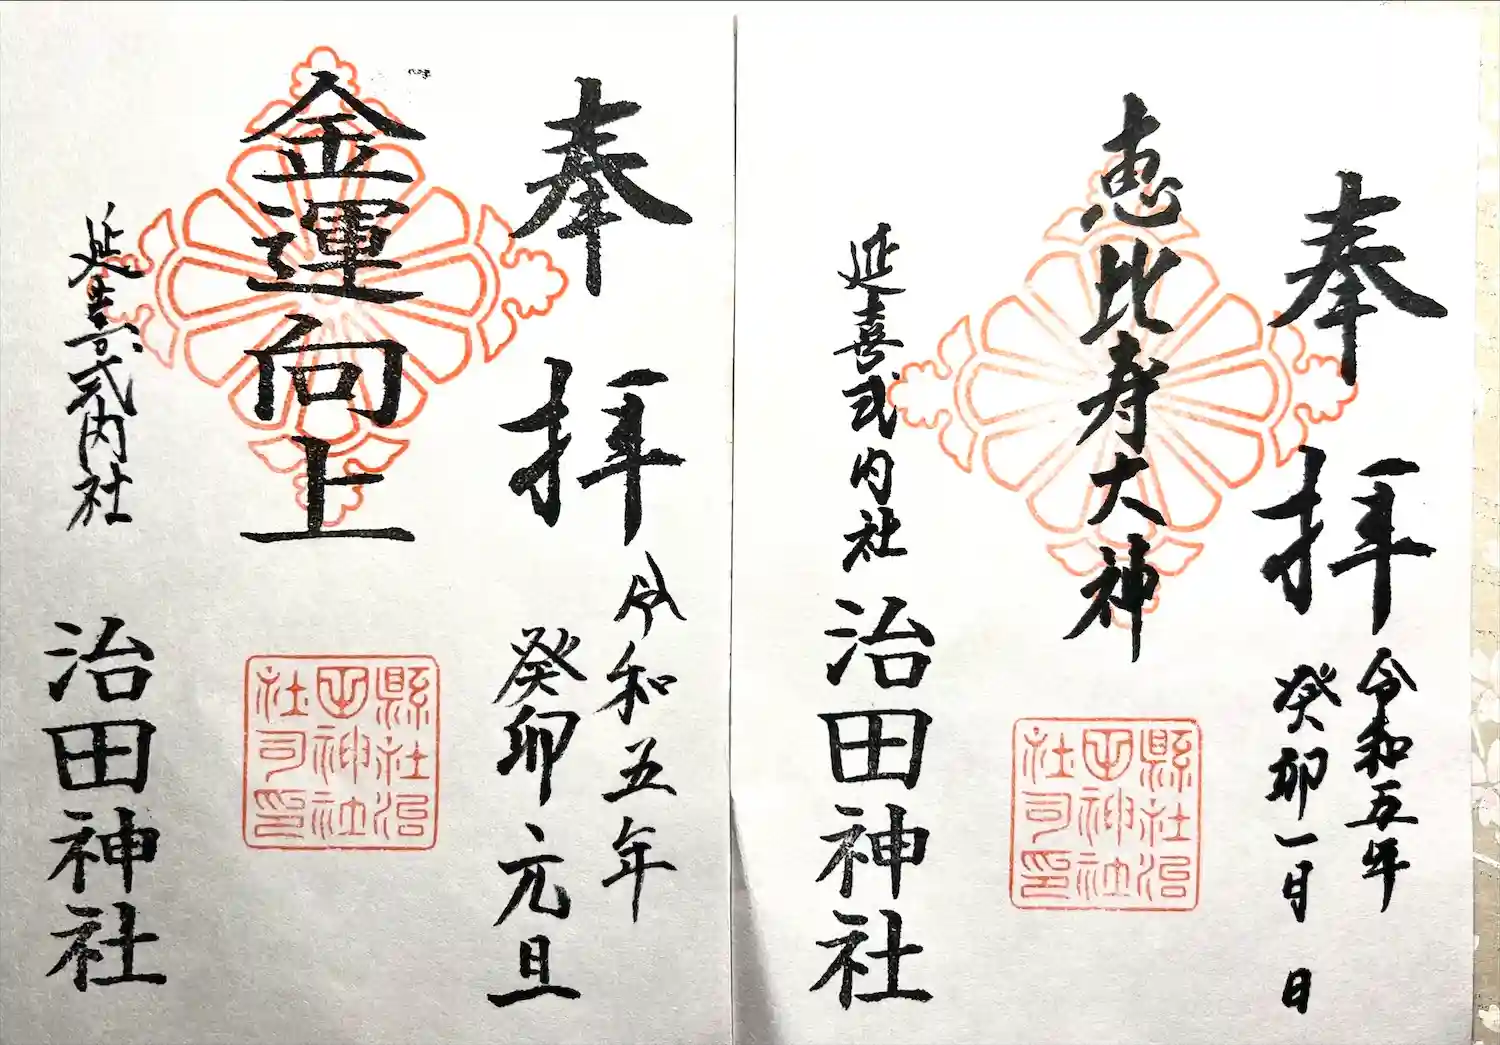 奉拝
恵比寿大神
令和五年
癸卯一月 日
延喜式内社
治田神社
縣社治
田神社
社司印
奉拝
金運向上
令和五年
癸卯元旦
延喜式内社
治田神社
縣社治
田神社
社司印